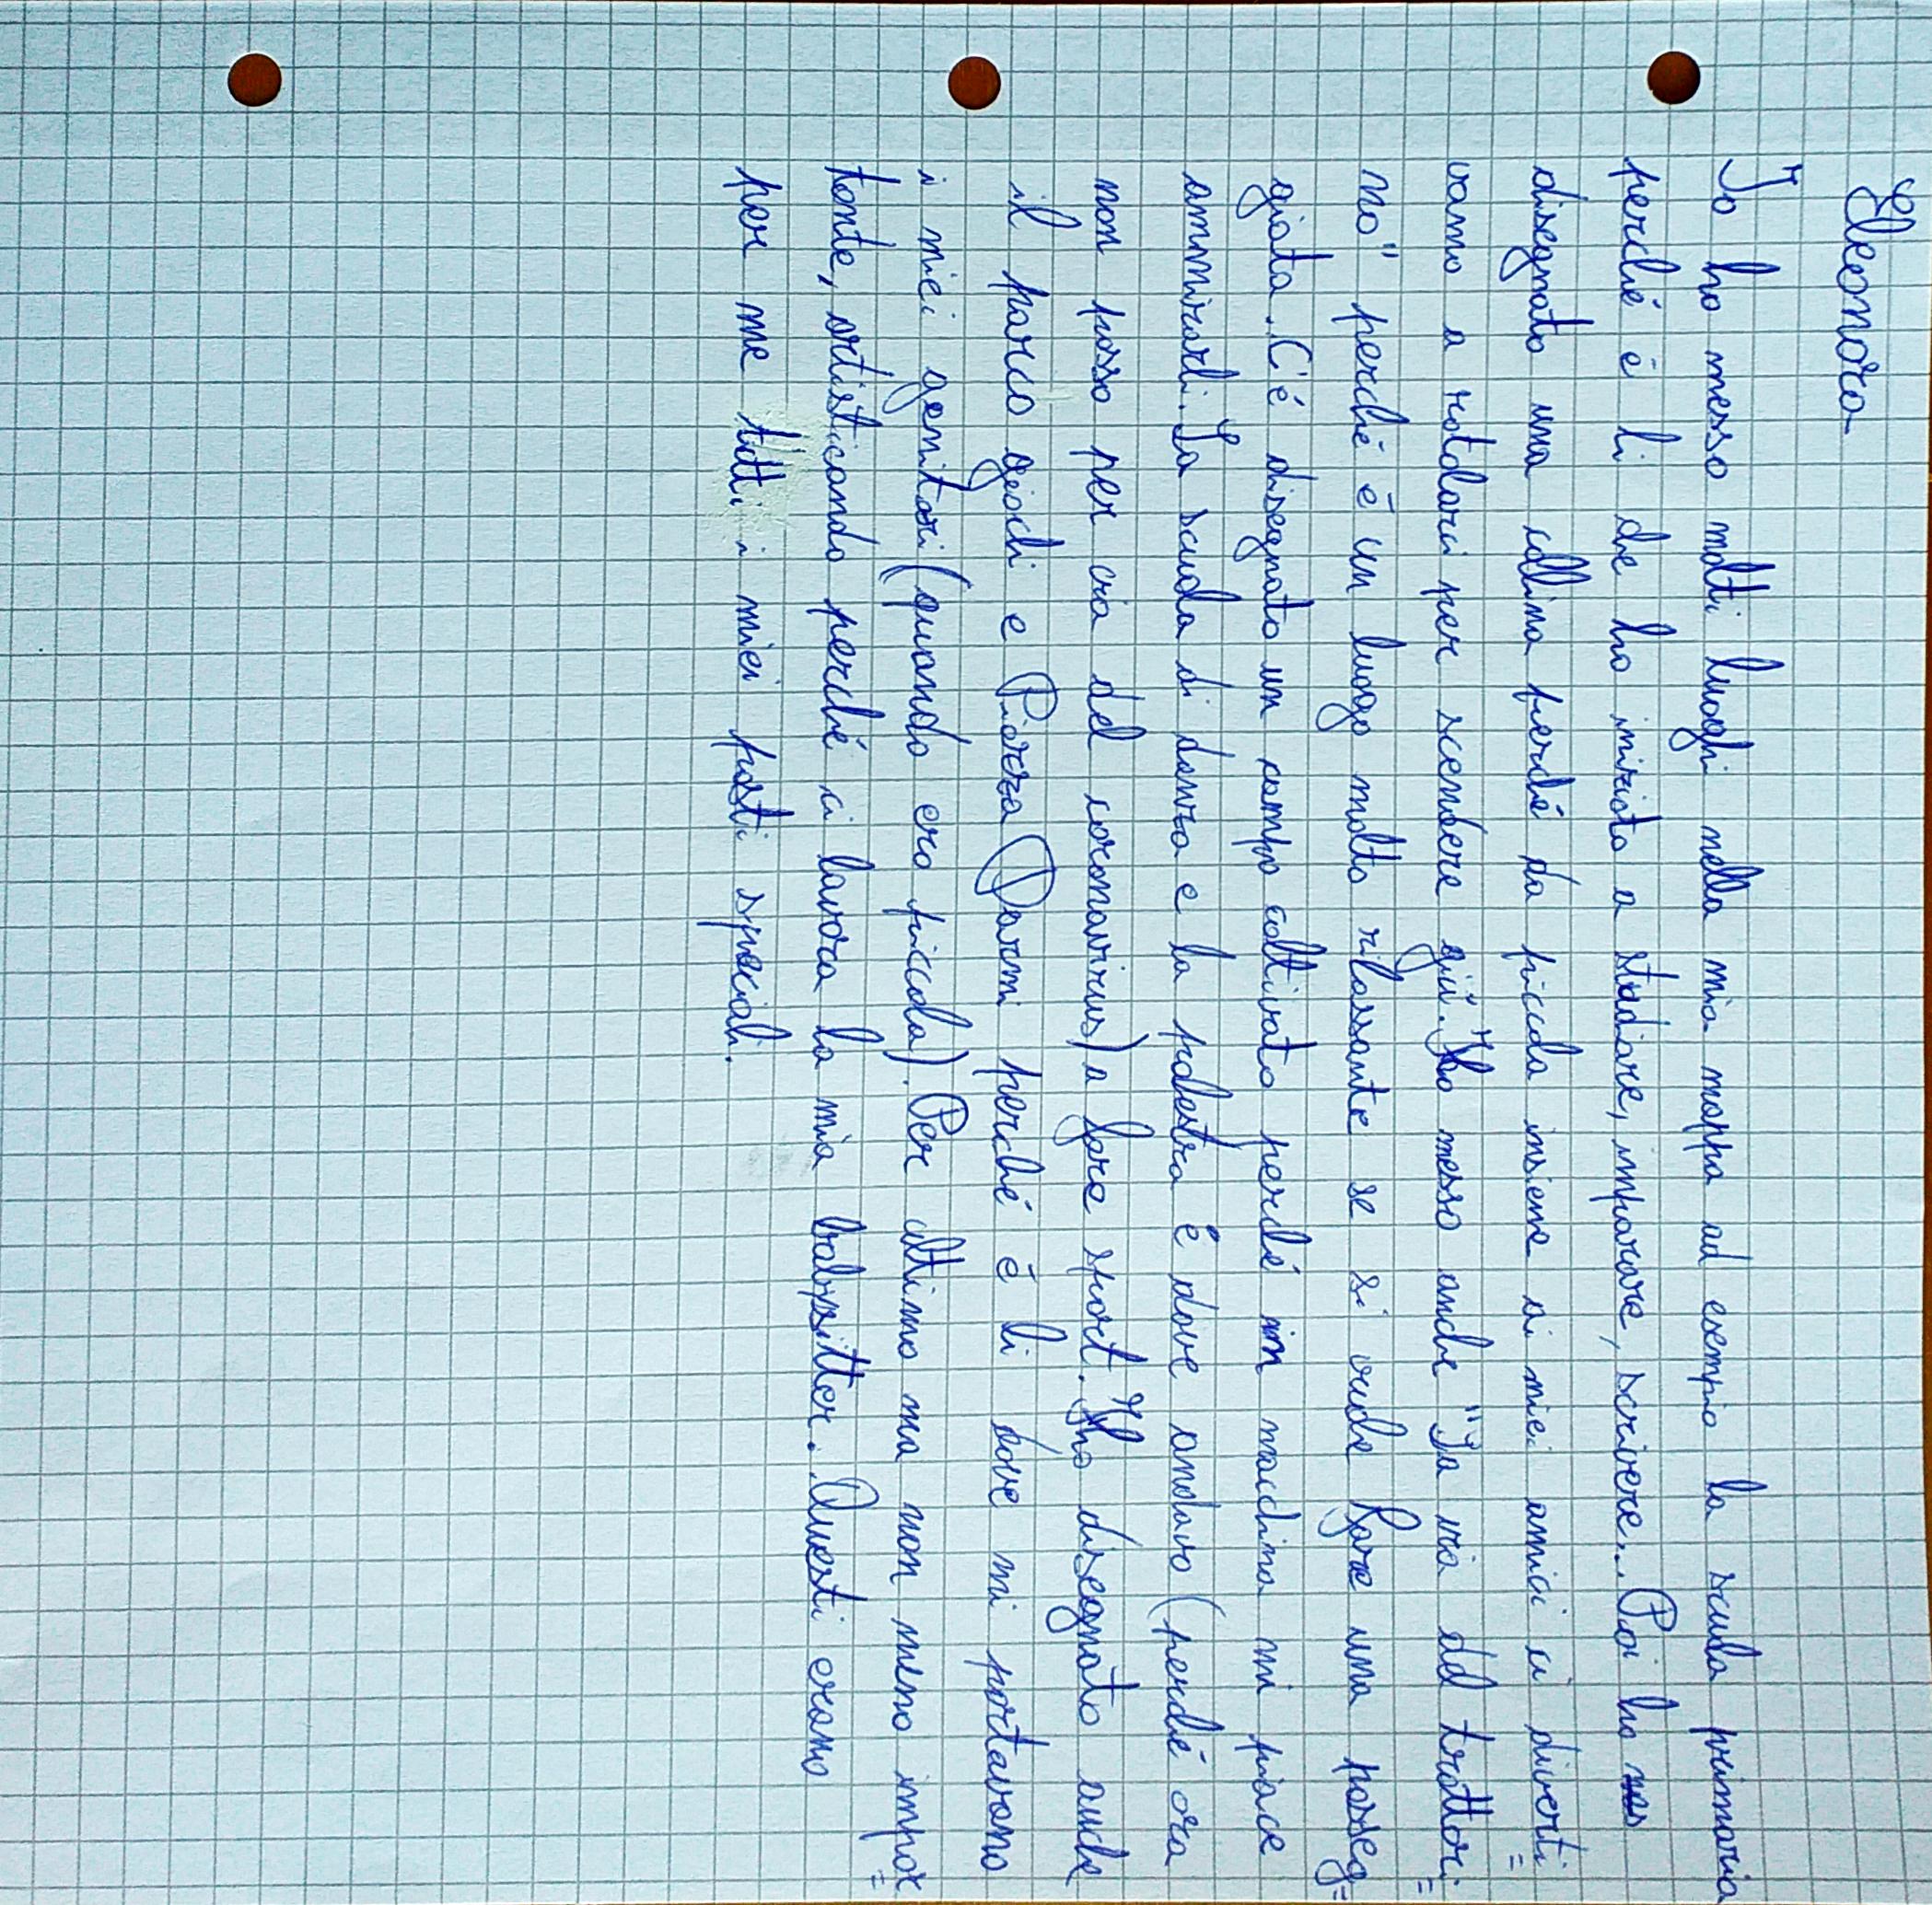 Eleonora
Io ho messo molti luoghi nella mia mappa ad esempio la scuola primaria
perché é lì che ho iniziato a studiare, imparare, scrivere... Poi ho
disegnato una collina perché da piccola insieme ai miei amici ci diverti=
vamo a rotolarci per scendere giù. Ho messo anche "La via del trattori=
no" perché é un luogo molto rilassante se si vuole fare una passeg=
giata. C'é disegnato un campo coltivato perché in macchina mi piace
ammirarli. La scuola di danza e la palestra é dove andavo (perché ora
non posso per via del coronavirus) a fare sport. Ho disegnato anche
il parco giochi e Piazza Parmi perché é lì dove mi portavano
i miei genitori (quando ero piccola). Per ultimo ma non meno impor=
tante, artisticando perché ci lavora la mia babysitter. Questi erano
per me tutti i miei posti speciali.